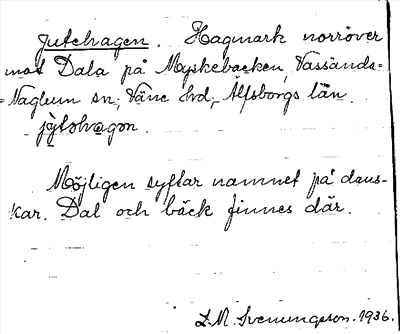 Jutehagen. Hagmark norröver
mot Dala på Myskebacken, Vassända-
-Naglum sn; Väne hd, Älfsborgs län.
jȳtəhagən.
Möjligen syftar namnet på dans-
kar. Dal och bäck finnes där.
L.M. Svenungsson. 1936.